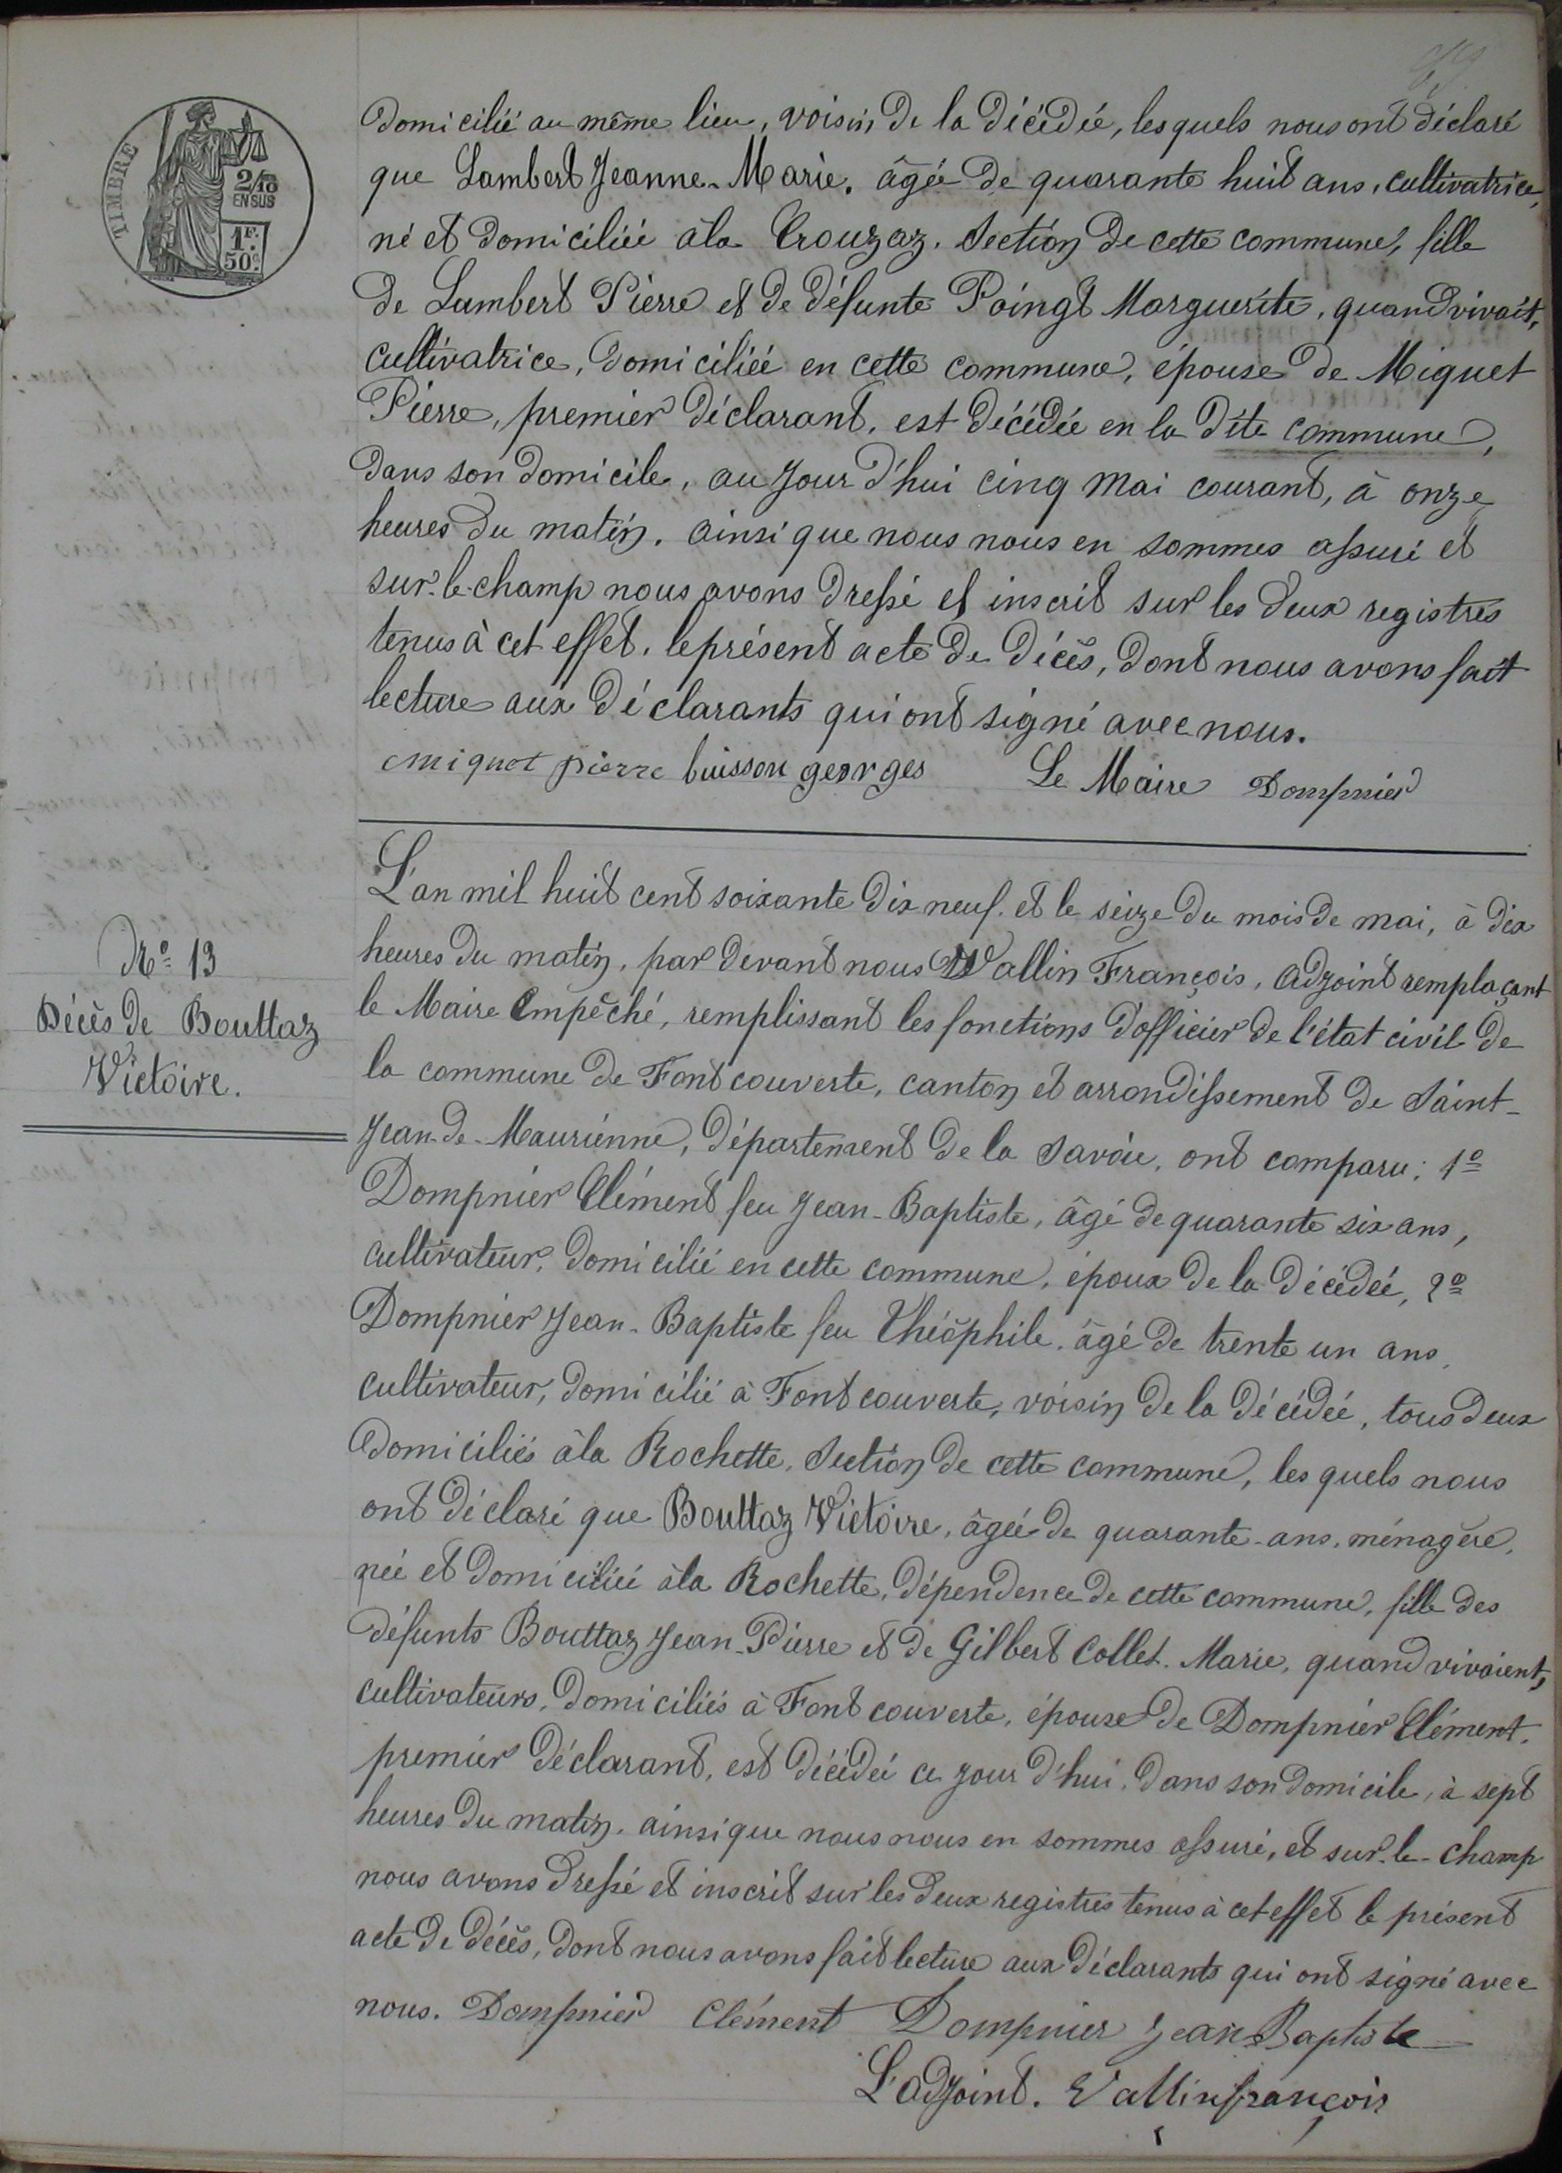 TIMBRE
2/10
EN SUS
1F.
50c.
domicilié au même lieu, voisin de la décédée, lesquels nous ont déclaré
que Lambert Jeanne-Marie. âgée de quarante huit ans, cultivatrice,
né et domiciliée à la Crouzaz. Section de cette commune, fille
de Lambert Pierre et de défunte Poingt Marguerite, quand vivait,
cultivatrice, domiciliée en cette commune, épouse de Miquet
Pierre, premier déclarant, est décédée en la dite commune,
dans son domicile, au jour d'hui cinq mai courant, à onze
heures du matin. ainsi que nous nous en sommes assuré et
sur-le-champ nous avons dressé et inscrit sur les deux registres
tenus à cet effet, le présent acte de décès, dont nous avons fait
lecture aux déclarants qui ont signé avec nous.
miquet pierre buisson georges Le Maire Dompnier
No 13
Décès de Bouttaz
Victoire.
L'an mil huit cent soixante dix neuf. et le seize du mois de mai, à dix
heures du matin, par devant nous Wallin François, adjoint remplaçant
le Maire Empêché, remplissant les fonctions d'officier de l'état civil de
la commune de Fontcouverte, canton et arrondissement de Saint-
Jean-de-Maurienne, département de la Savoie, ont comparu: 1o
Dompnier Clément feu Jean-Baptiste, âgé de quarante six ans,
cultivateur, domicilié en cette commune, époux de la décédée, 2o
Dompnier Jean-Baptiste feu Théophile. âgé de trente un ans,
cultivateur, domicilié à Fontcouverte, voisin de la décédée, tous deux
domiciliés à la Rochette, Section de cette commune, les quels nous
ont déclaré que Bouttaz Victoire, âgée de quarante-ans, ménagère,
née et domiciliée à la Rochette, dépendence de cette commune, fille des
défunts Bouttaz Jean-Pierre et de Gilbert Collet. Marie, quand vivaient,
cultivateurs, domiciliés à Fontcouverte, épouse de Dompnier Clément.
premier déclarant, est décédée ce jour d'hui, dans son domicile, à sept
heures du matin. ainsi que nous nous en sommes assuré, et sur-le-champ
nous avons dressé et inscrit sur les deux registres tenus à cet effet le présent
acte de décès, dont nous avons fait lecture aux déclarants qui ont signé avec
nous. Dompnier Clément Dompnier Jean Baptiste
L'adjoint. Vallin françois